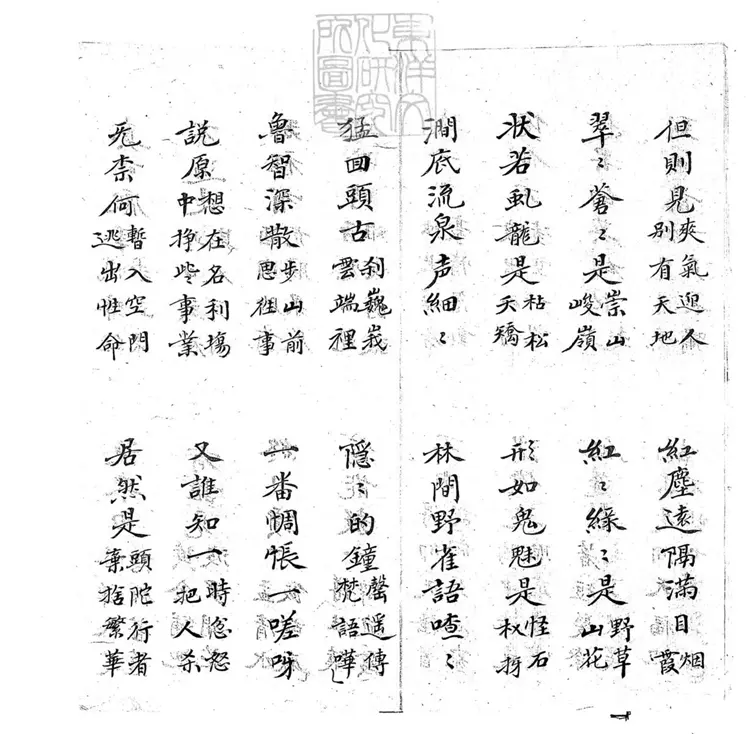 東洋文化研究所圖書
但則見爽氣迎人別有天地
紅塵遠隔滿目烟霞
翠〻蒼〻是崇山峻嶺
紅〻緑〻是野草山花
状若虬龍是枯松夭矯
形如鬼魅是怪石杈枒
澗底流泉声細〻
林間野雀語喳〻
猛回頭古刹巍峩雲端裡
隠〻的鐘磬遥傳梵語嘩
魯智深散步山前思徃事
一番惆悵一嗟呀
説原想在名利塲中掙些事業
又誰知一時忿怒把人杀
旡柰何暫入空門逃出性命
居然是頭陀行者棄捨繁華